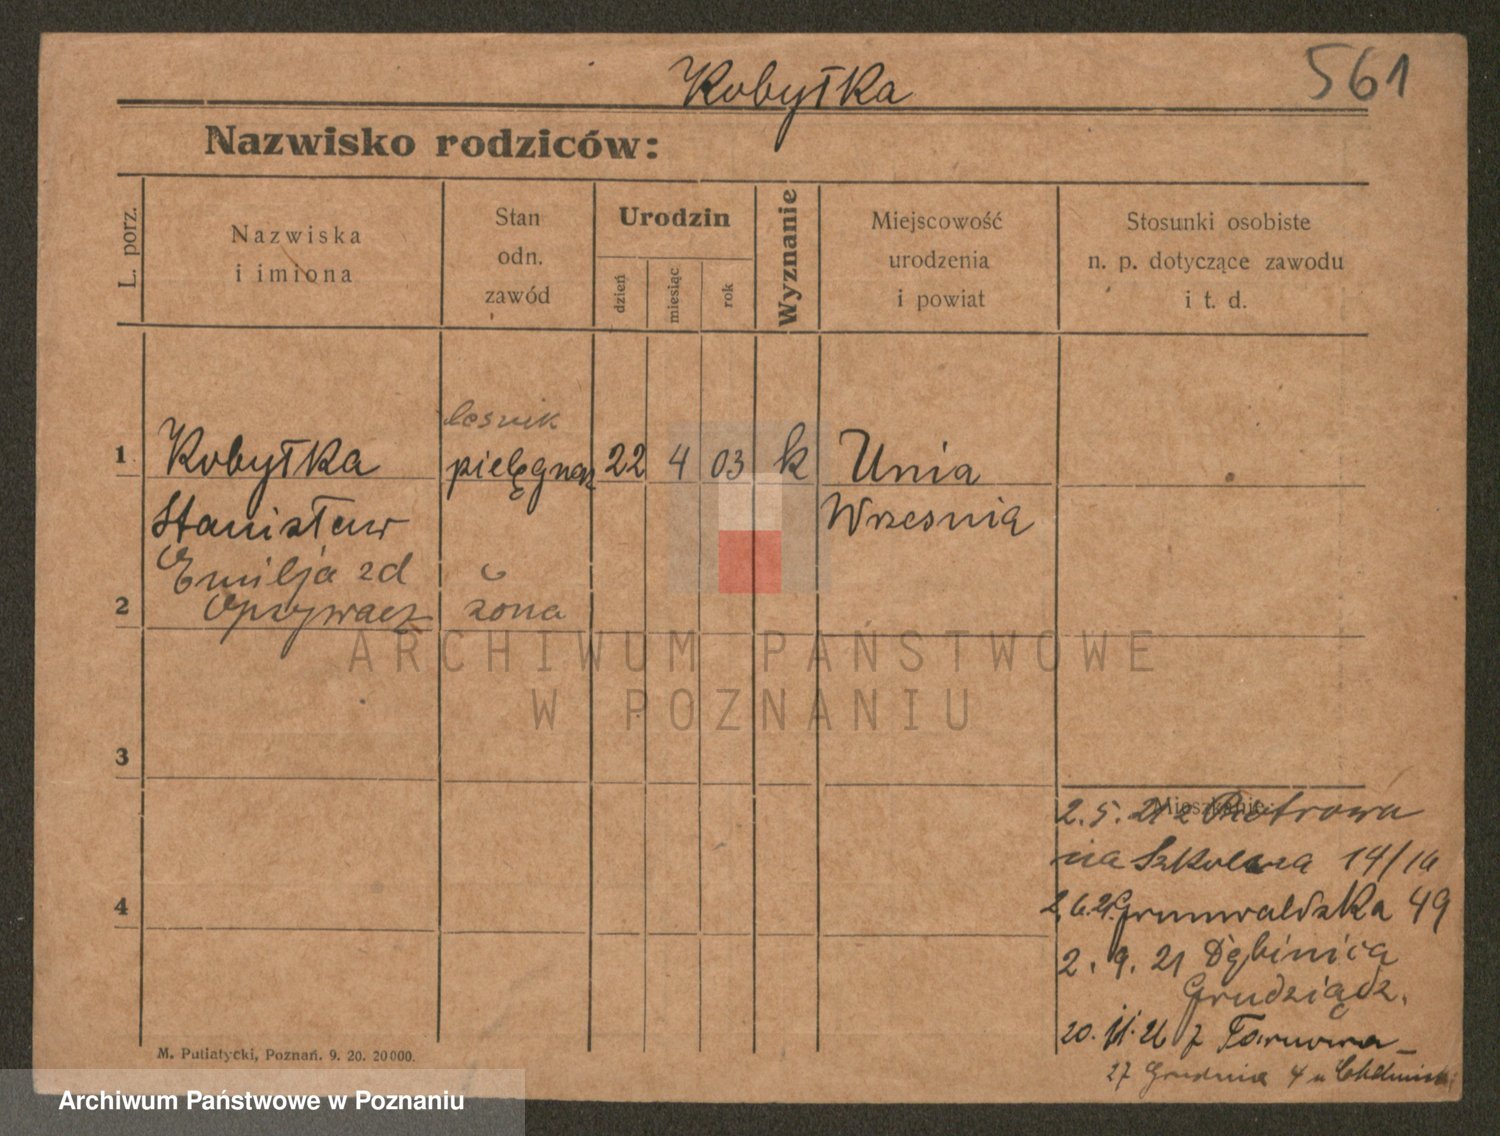 Kobyłka
561
Nazwisko rodziców:
L. porz.
Nazwiska
i imiona
Stan
odn.
zawód
Urodzin
dzień
miesiąc
rok
Wyznanie
Miejscowość
urodzenia
i powiat
Stosunki osobiste
n. p. dotyczące zawodu
i t. d.
leśnik
1 Kobyłka pielęgniarz 22 4 03 k Unia
Stanisław Wrzesnia
Emilja zd
2 żona
3
Mieszkanie:
2.5.21 z Piotrowa
na Szkolna 14/16
4
2.6.21. Grunwaldzka 49
2.9.21 Dębinica
Grudziądz.
27 Grudnia 4 u
M. Putiatycki, Poznań. 9. 20. 20000.
ARCHIWUM PAŃSTWOWE
W POZNANIU
Archiwum Państwowe w Poznaniu